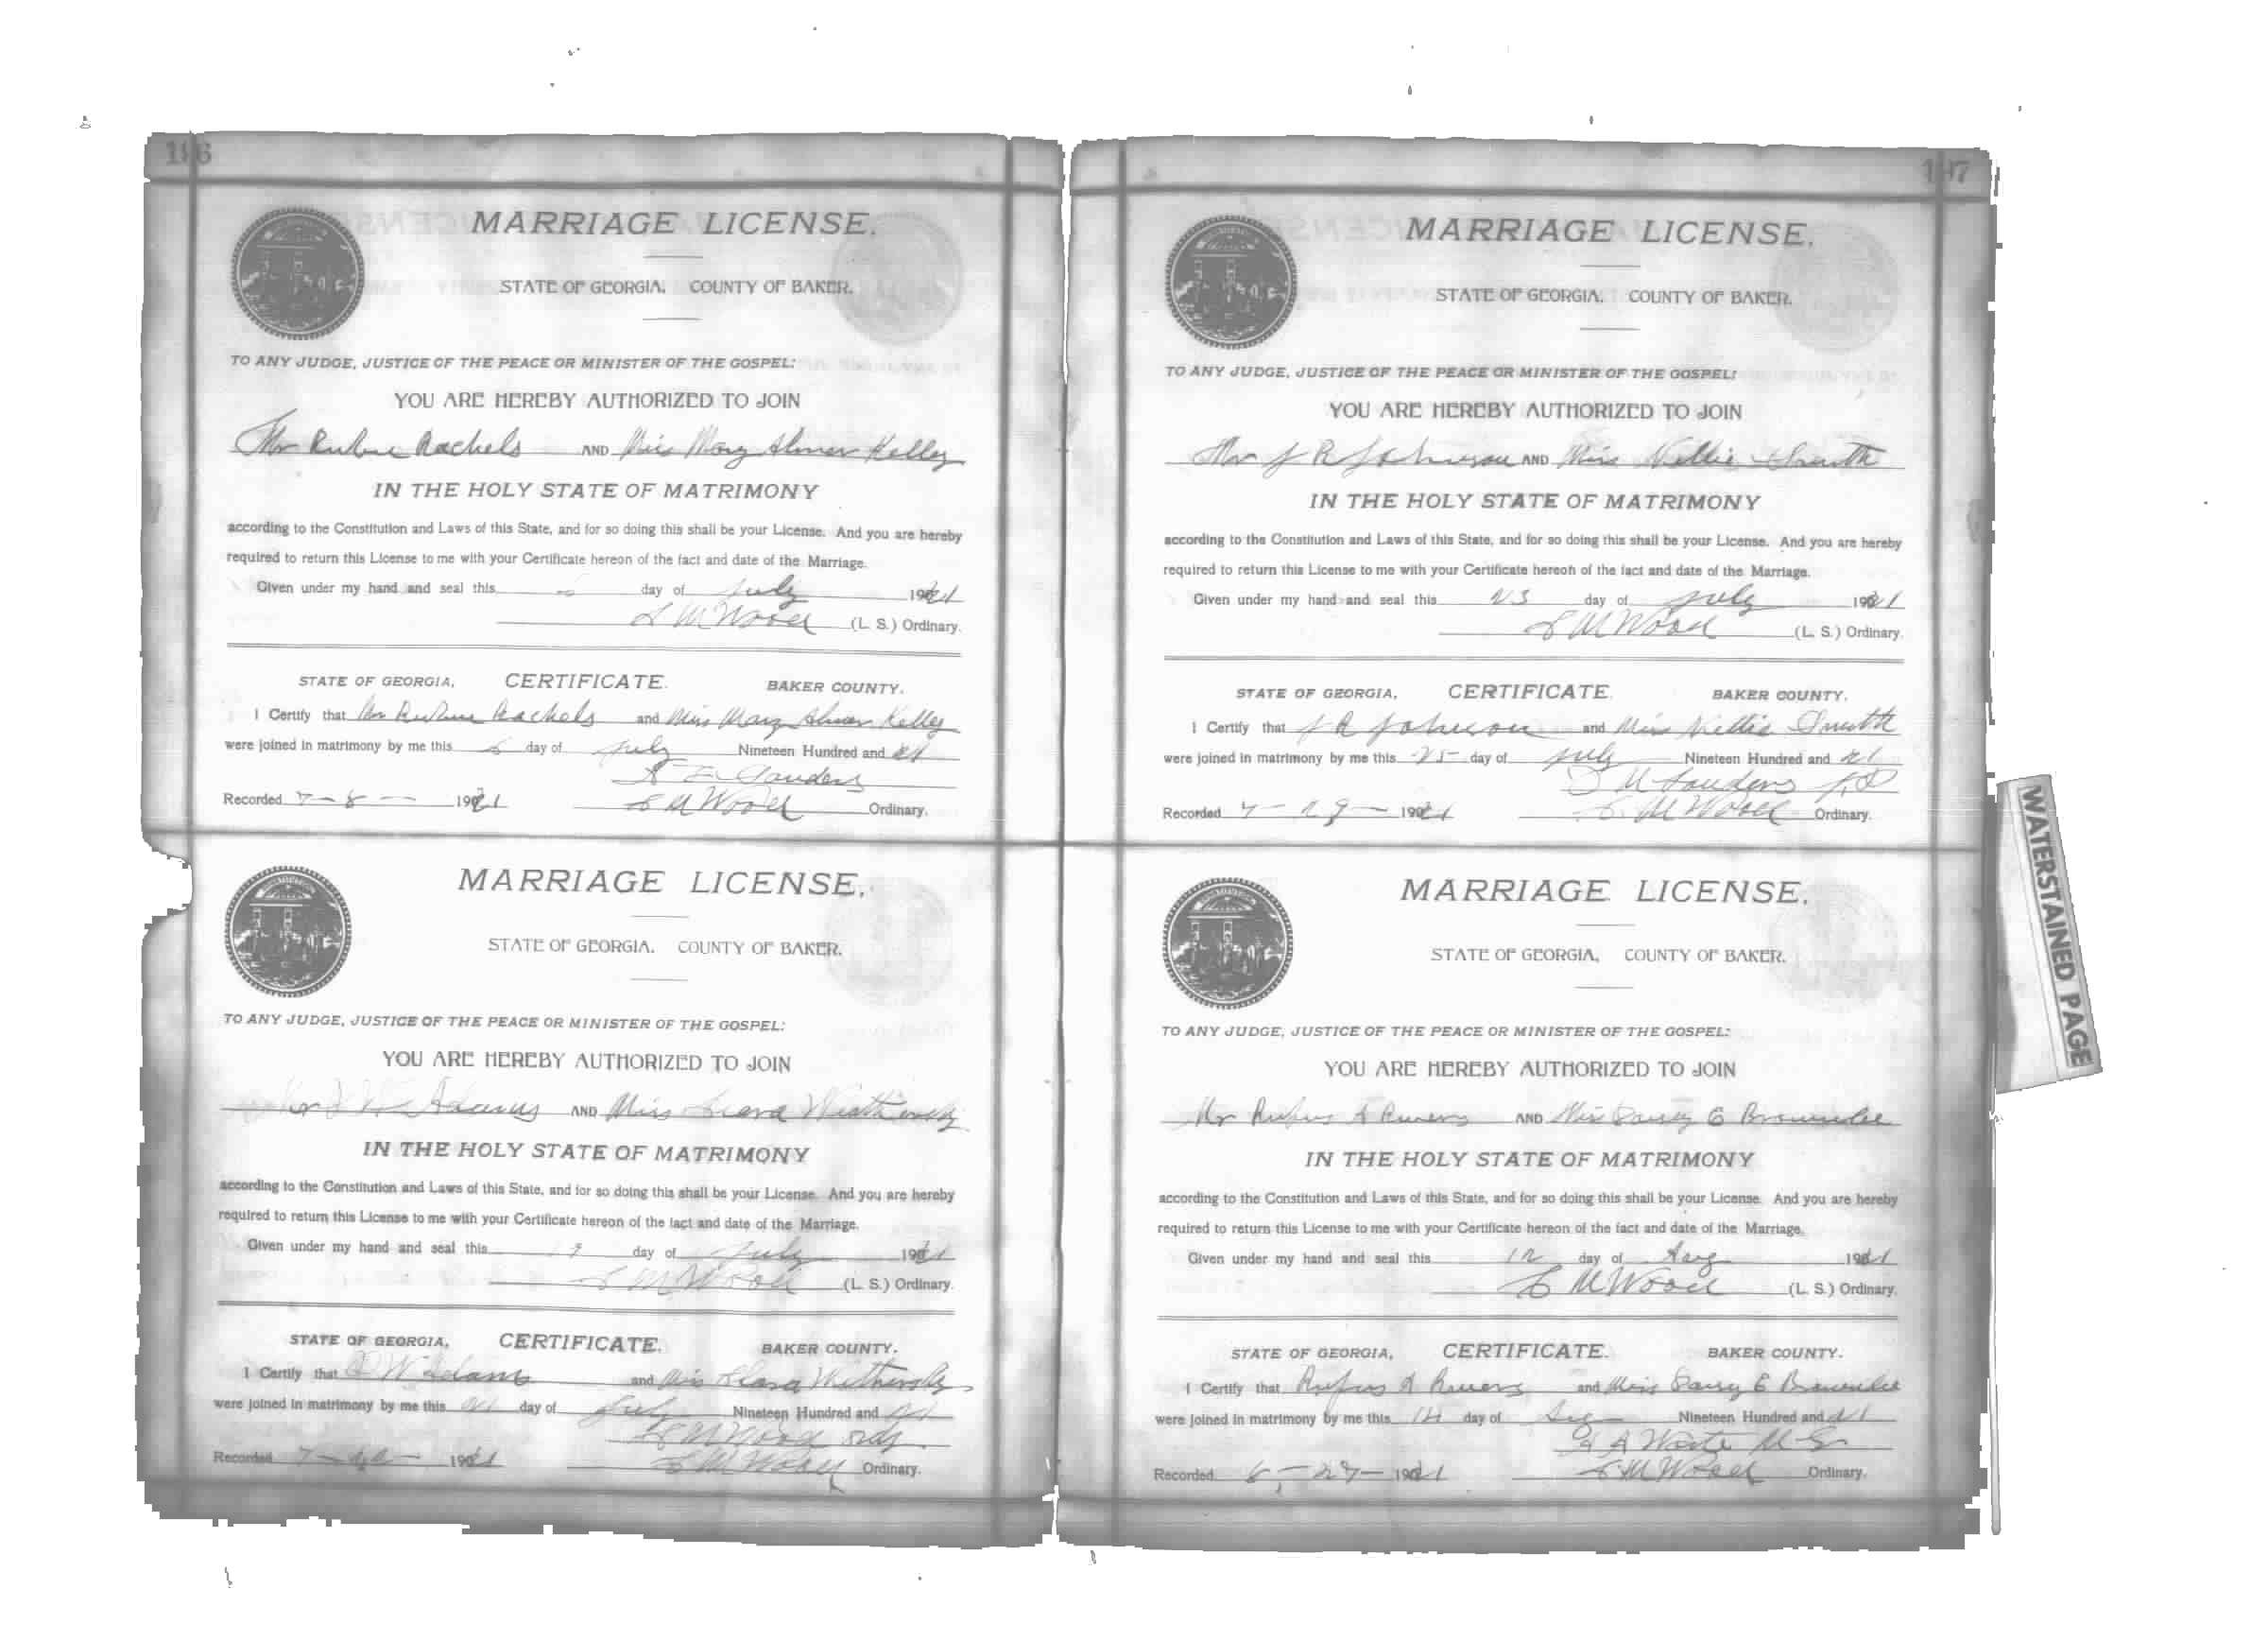 MARRIAGE LICENSE.
STATE OF GEORGIA. COUNTY OF BAKER.
TO ANY JUDGE, JUSTICE OF THE PEACE OR MINISTER OF THE GOSPEL:
YOU ARE HEREBY AUTHORIZED TO JOIN
Mr Rachels AND Miss Mary Kelley
IN THE HOLY STATE OF MATRIMONY
according to the Constitution and Laws of this State, and for so doing this shall be your License. And you are hereby
required to return this License to me with your Certificate hereon of the fact and date of the Marriage.
Given under my hand and seal this day of July 1921
Wood (L. S.) Ordinary.
STATE OF GEORGIA, CERTIFICATE. BAKER COUNTY.
I Certify that Mr Rachels and Miss Mary Kelley
were joined in matrimony by me this 6 day of July Nineteen Hundred and 21
Recorded 7-8- 1921 M Wood Ordinary.
MARRIAGE LICENSE.
STATE OF GEORGIA. COUNTY OF BAKER.
TO ANY JUDGE, JUSTICE OF THE PEACE OR MINISTER OF THE GOSPEL:
YOU ARE HEREBY AUTHORIZED TO JOIN
W Adams AND Miss
IN THE HOLY STATE OF MATRIMONY
according to the Constitution and Laws of this State, and for so doing this shall be your License. And you are hereby
required to return this License to me with your Certificate hereon of the fact and date of the Marriage.
Given under my hand and seal this day of July 1921
M Wood (L. S.) Ordinary.
STATE OF GEORGIA, CERTIFICATE. BAKER COUNTY.
I Certify that W Adams and Miss
were joined in matrimony by me this day of July Nineteen Hundred and 21
M Wood Ordy
Recorded 1921 M Wood Ordinary.
MARRIAGE LICENSE.
STATE OF GEORGIA. COUNTY OF BAKER.
TO ANY JUDGE, JUSTICE OF THE PEACE OR MINISTER OF THE GOSPEL:
YOU ARE HEREBY AUTHORIZED TO JOIN
Mr J R Johnson AND Miss Nellie Smith
IN THE HOLY STATE OF MATRIMONY
according to the Constitution and Laws of this State, and for so doing this shall be your License. And you are hereby
required to return this License to me with your Certificate hereon of the fact and date of the Marriage.
Given under my hand and seal this 23 day of July 1921
M Wood (L. S.) Ordinary.
STATE OF GEORGIA, CERTIFICATE. BAKER COUNTY.
I Certify that J R Johnson and Miss Nellie Smith
were joined in matrimony by me this 25 day of July Nineteen Hundred and 21
Recorded 7-29- 1921 M Wood Ordinary.
MARRIAGE LICENSE.
STATE OF GEORGIA, COUNTY OF BAKER.
TO ANY JUDGE, JUSTICE OF THE PEACE OR MINISTER OF THE GOSPEL:
YOU ARE HEREBY AUTHORIZED TO JOIN
Mr Rufus A AND Miss E Brownlee
IN THE HOLY STATE OF MATRIMONY
according to the Constitution and Laws of this State, and for so doing this shall be your License. And you are hereby
required to return this License to me with your Certificate hereon of the fact and date of the Marriage.
Given under my hand and seal this 12 day of Aug 1921
M Wood (L. S.) Ordinary.
STATE OF GEORGIA, CERTIFICATE. BAKER COUNTY.
I Certify that Rufus A and Miss E Brownlee
were joined in matrimony by me this 14 day of Aug Nineteen Hundred and 21
Recorded 1921 M Wood Ordinary.
WATERSTAINED PAGE